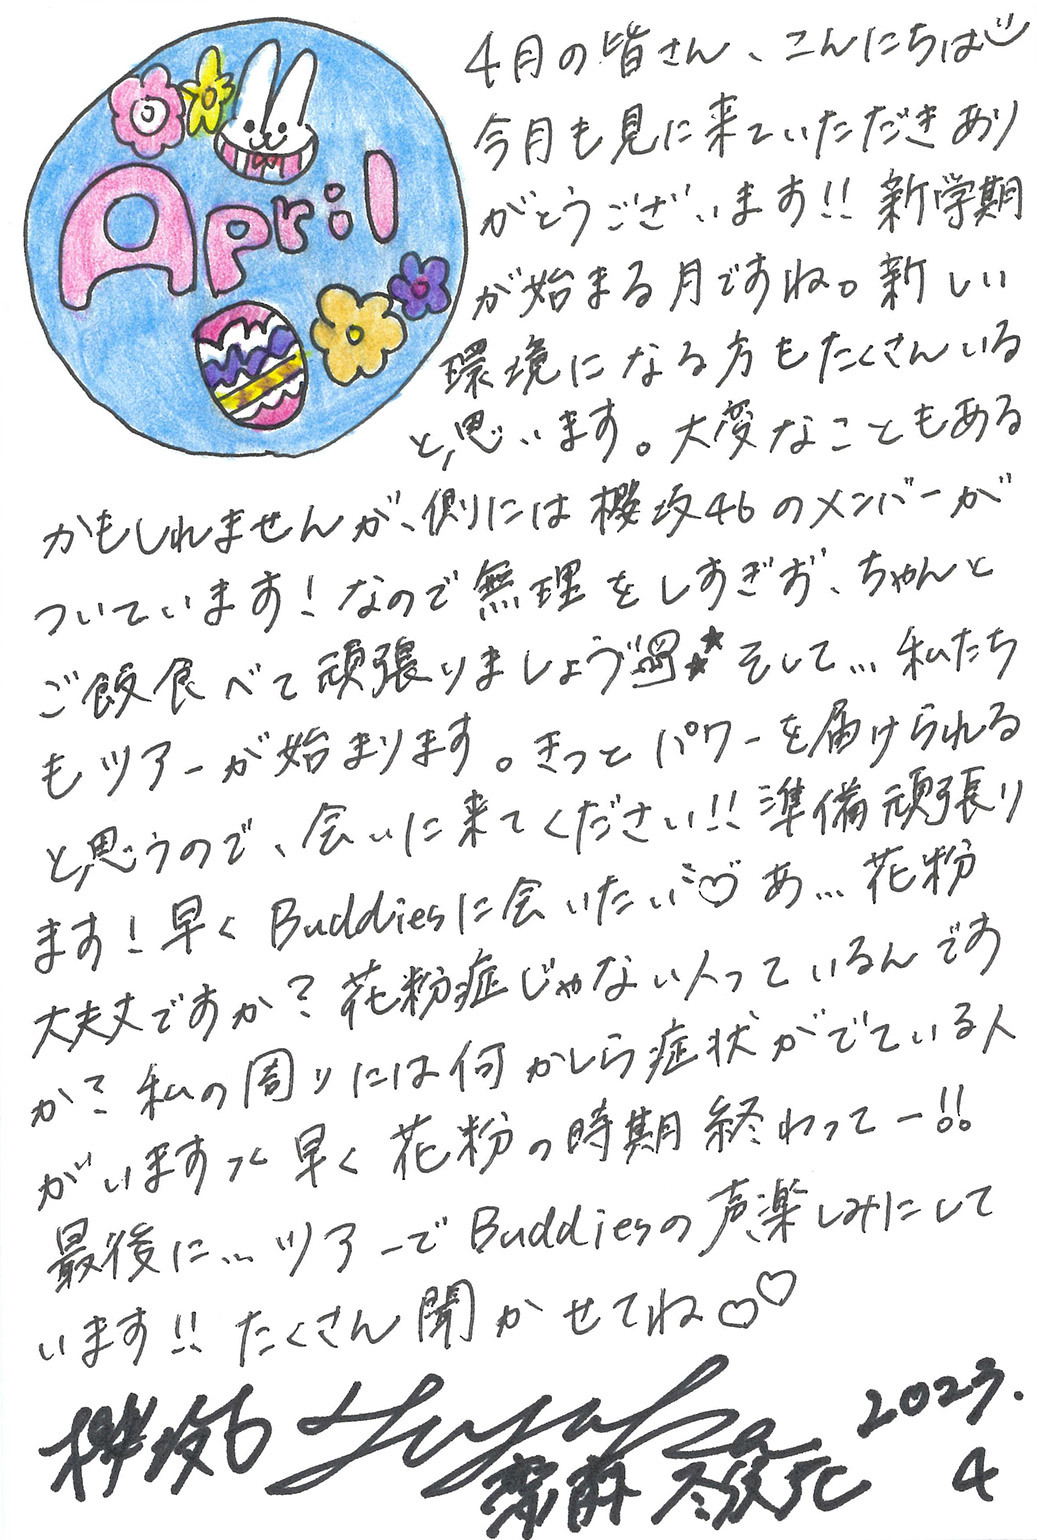 April
4月の皆さん、こんにちは
今月も見に来ていただきあり
がとうございます!! 新学期
が始まる月ですね。新しい
環境になる方もたくさんいる
と思います。大変なこともある
かもしれませんが、側には櫻坂46のメンバーが
ついています!なので無理をしすぎず、ちゃんと
ご飯食べて頑張りましょう そして…私たち
もツアーが始まります。きっとパワーを届けられる
と思うので、会いに来てください!! 準備頑張り
ます!早くBuddiesに会いたい♡ あ…花粉
大丈夫ですか?花粉症じゃない人っているんです
か?私の周りには何かしら症状がでている人
がいます 早く花粉の時期終わってー!!
最後に…ツアーでBuddiesの声楽しみにして
います!! たくさん聞かせてね♡♡
櫻坂46 Yuuka 2023.
4